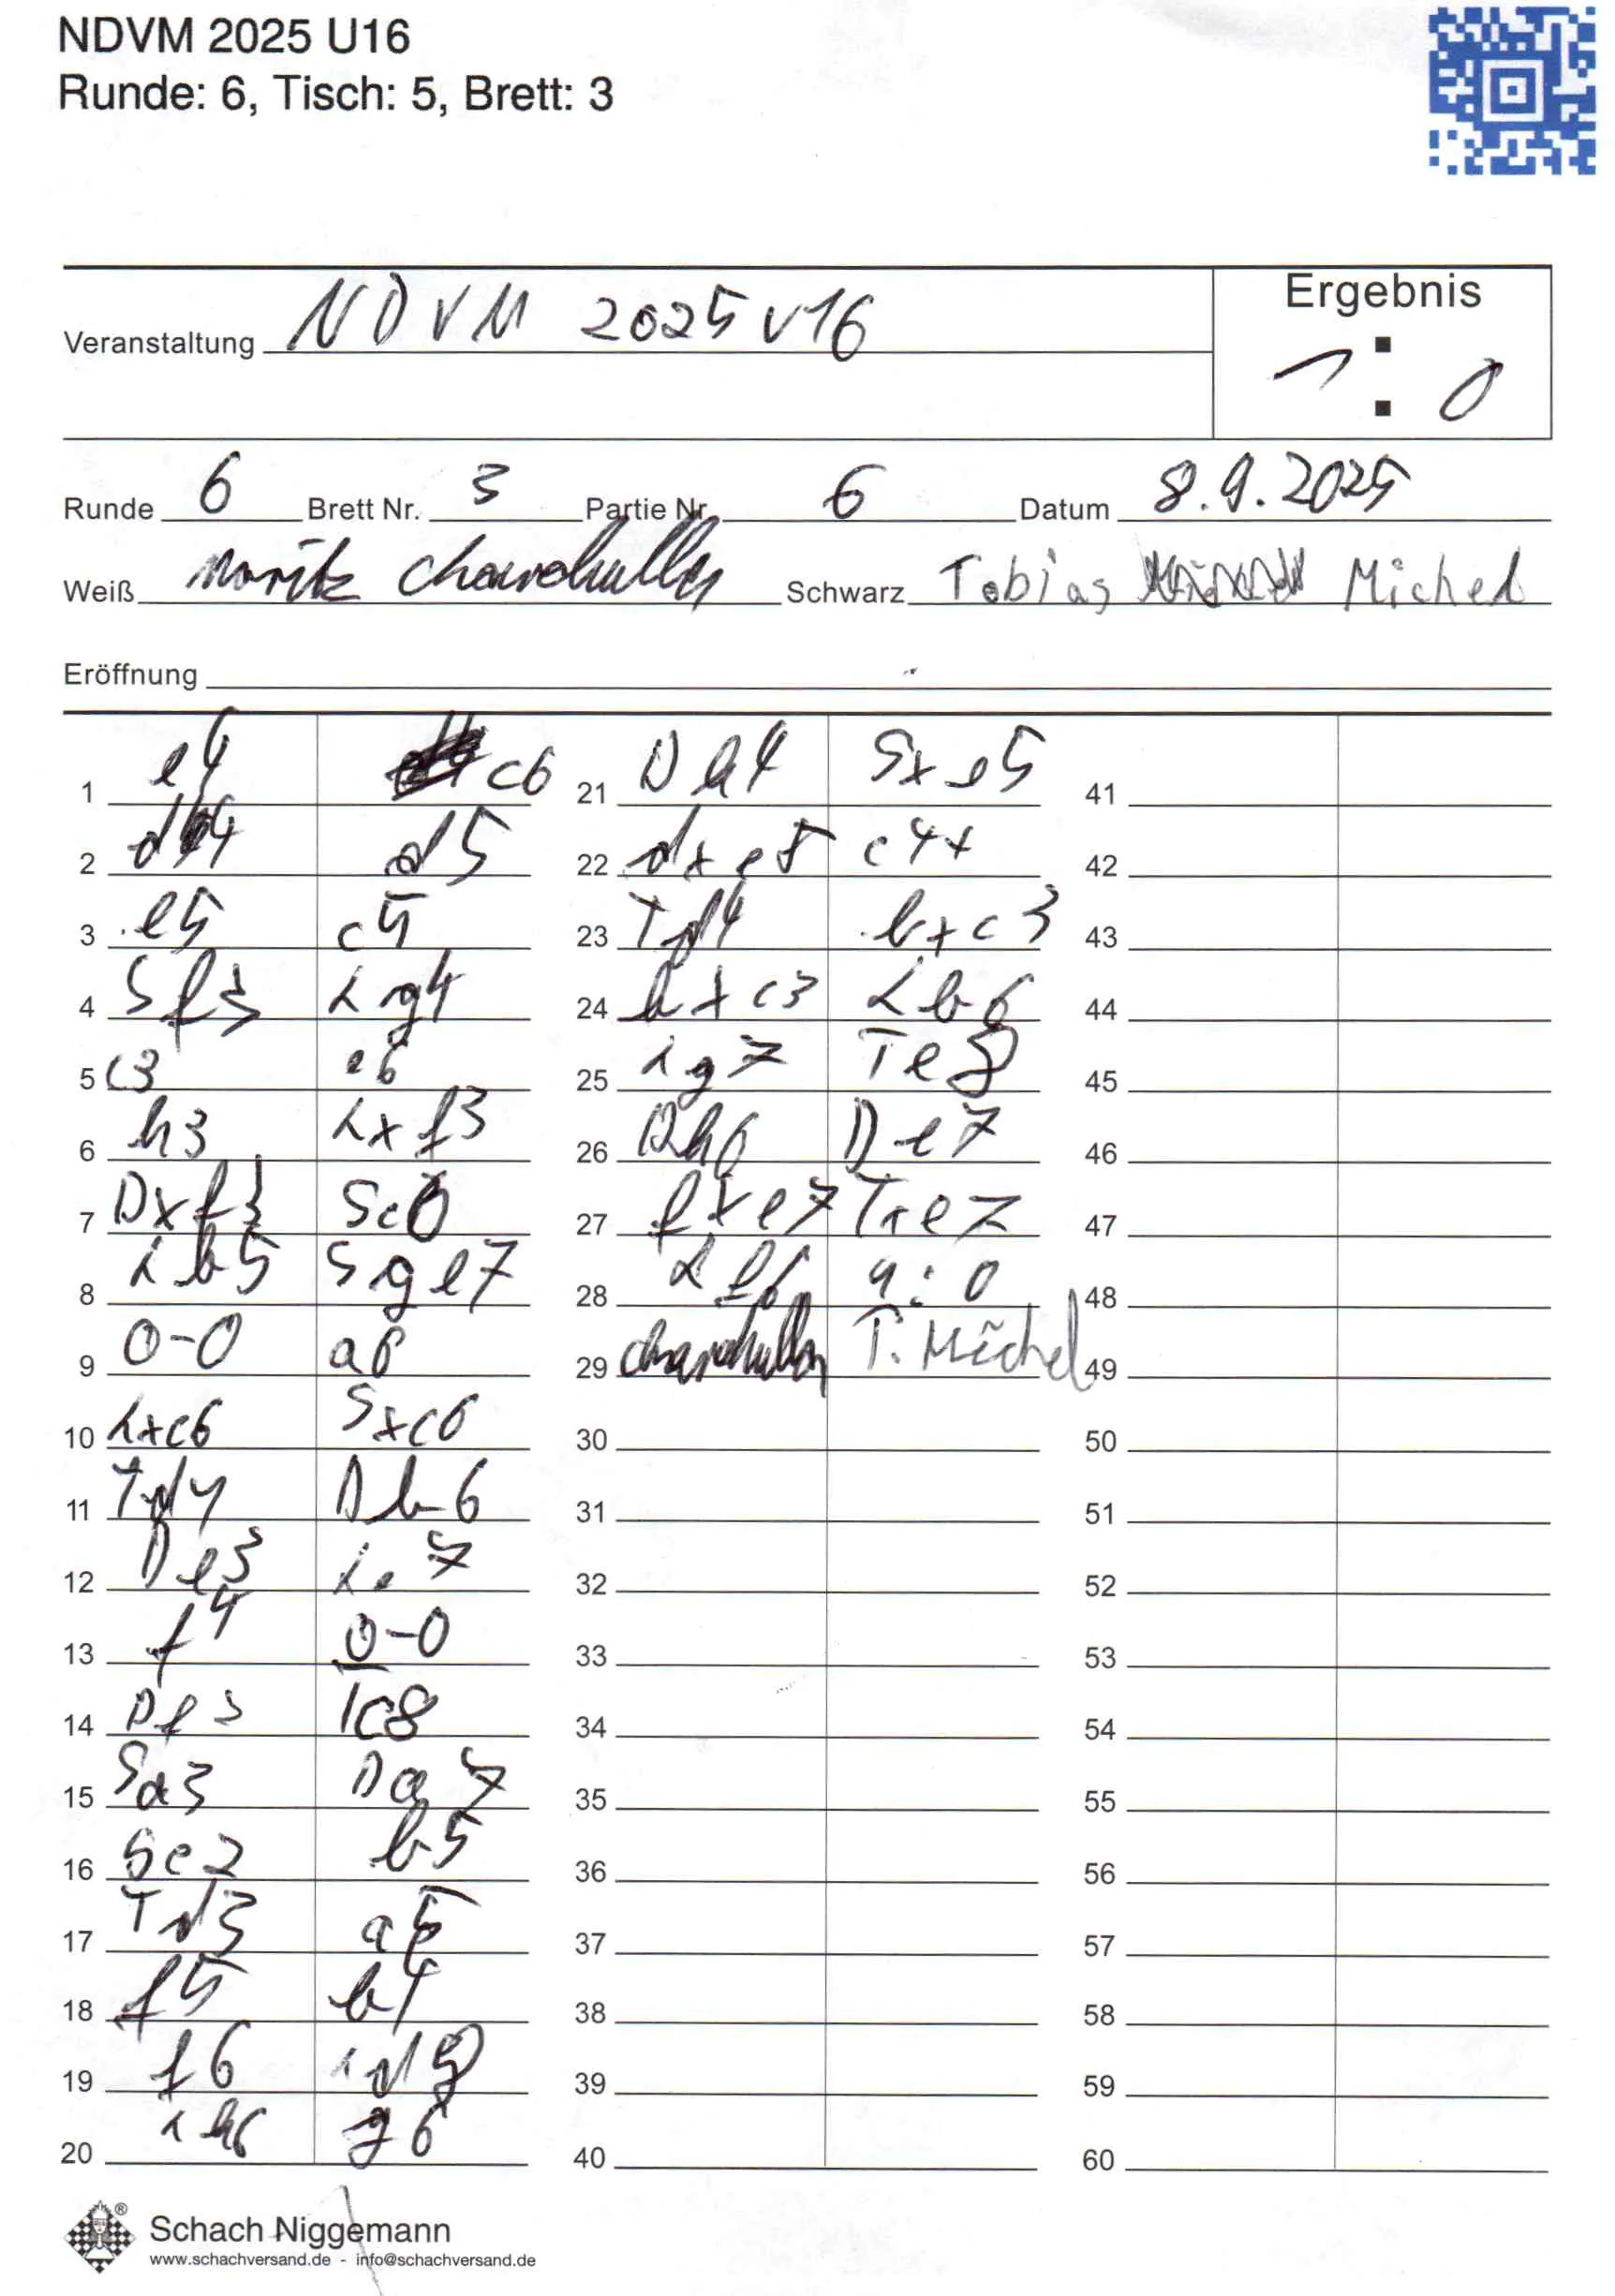 NDVM 2025 U16
Runde: 6, Tisch: 5, Brett: 3
Veranstaltung NDVM 2025 U16
Ergebnis
1 : 0
Runde 6 Brett Nr. 3 Partie Nr. 6 Datum 8.9.2025
Weiß Moritz Schwarz Tobias Michel
Eröffnung
1 e4 c6 21 Dh4 Sxe5 41
2 d4 d5 22 dxe5 c4+ 42
3 e5 c5 23 Td4 bxc3 43
4 Sf3 Lg4 24 bxc3 Lb6 44
5 c3 e6 25 Lg7 Te8 45
6 h3 Lxf3 26 Dh6 De7 46
7 Dxf3 Sc6 27 fxe7 Txe7 47
8 Lb5 Sge7 28 Lf6 1:0 48
9 0-0 a6 29 T. Michel 49
10 Lxc6 Sxc6 30 50
11 Td1 Db6 31 51
12 De3 Le7 32 52
13 f4 0-0 33 53
14 Df3 Tc8 34 54
15 Sa3 Da7 35 55
16 Sc2 b5 36 56
17 Td3 a5 37 57
18 f5 b4 38 58
19 f6 Ld8 39 59
20 Lh6 g6 40 60
Schach Niggemann
www.schachversand.de - info@schachversand.de